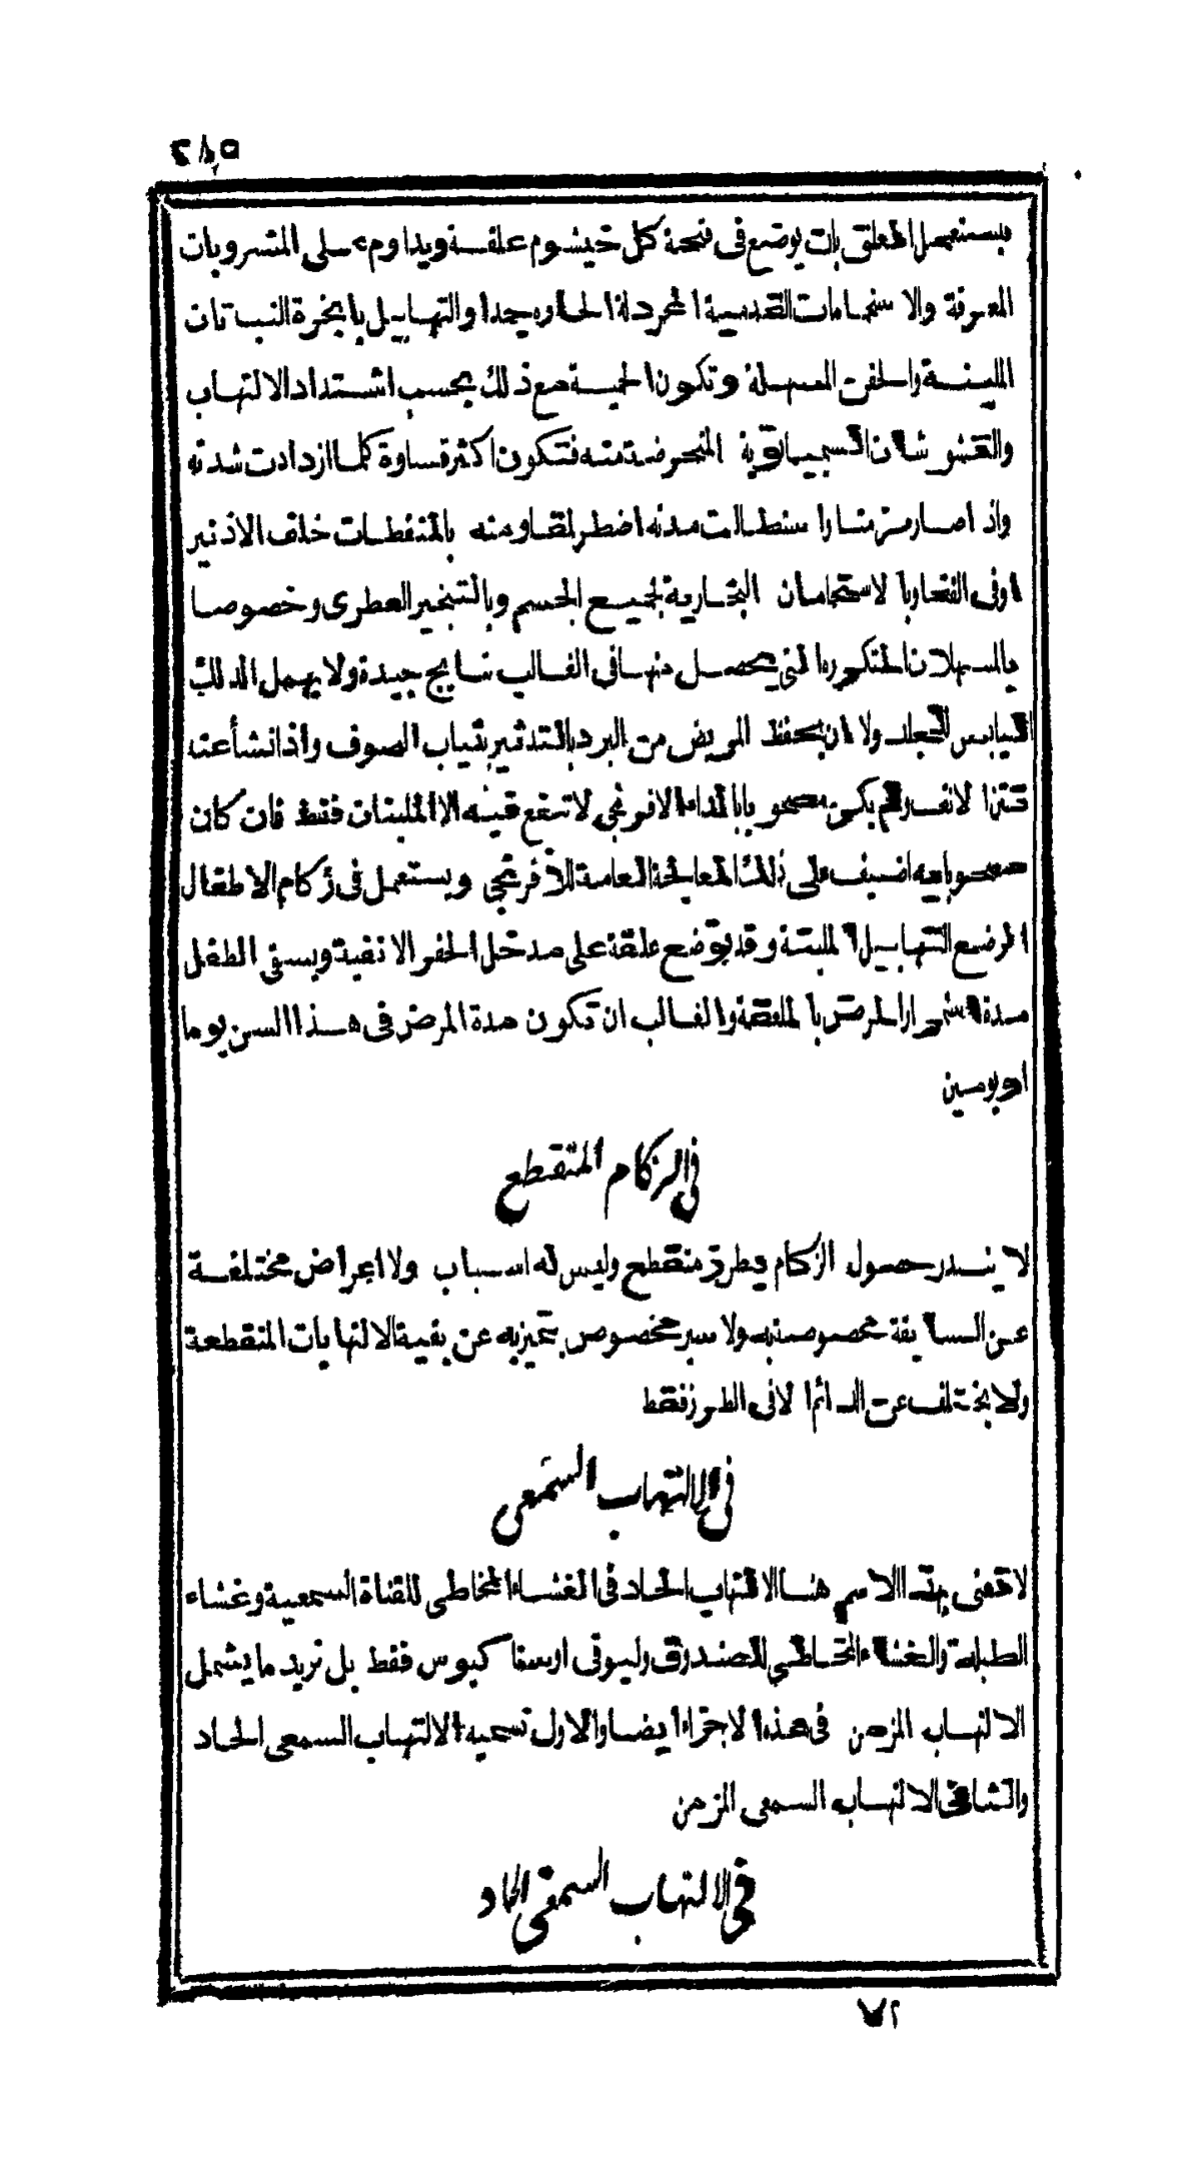 يستعمل العلق بان يوضع فى فتحة كل خيشوم علقة ويداوم على المشروبات
المعرقة والاستحمامات القدمية الخردلة الحاره جدا والتهابيل بابخرة النباتات
الملينة والحقن المسهلة وتكون الحمية مع ذلك بحسب اشتداد الالتهاب
والقشور شان السمبانوية المنحرضة منه فتكون اكثر قساوة كلما ازدادت شدته
واذا صار مزمنا را ستطالت مدته اضطر لمقاومته بالمنفطات خلف الاذنين
اوفى القفا وبا لاستحمامات البخارية لجميع الجسم وبالتبخير العطرى وخصوصا
بالمسهلات المتكرره التى يحصل منها فى الغالب نتايج جيدة ولا يهمل الدلك
اليابس للجلد ولا ان يحفظ المريض من البرد بالتدثير بثياب الصوف واذا نشأ عنه
نتن الانف ولم يكن مصحوبا بالداء الافرنجى لا تنفع فيه الا الملينات فقط فان كان
مصحوبا به اضيف على ذلك المعالجة العامة للافرنجى ويستعمل فى زكام الاطفال
الرضع التهابيل الملينة وقد يوضع علقة على مدخل الحفر الانفية ويسقى الطفل
مدة استمرار المرض با لملعقة والغالب ان تكون مدة المرض فى هذا السن يوما
او يومين
فى الزكام المتقطع
لا يندر حصول الزكام بطرز متقطع وليس له اسباب ولا اعراض مختلفة
عن السابقة مخصوصة به ولا سير مخصوص يتميز به عن بقية الالتهابات المتقطعة
ولا يختلف عن الدائم الا فى الطرز فقط
فى الالتهاب السمعى
لا نعنى بهذا الاسم هنا الالتهاب الحاد فى الغشاء المخاطى للقناة السمعية وغشاء
الطبلة والغشاء المخاطى للصندوق ولبوقى اوستاكيوس فقط بل نريد ما يشمل
الالتهاب المزمن فى هذه الاجزاء ايضا والاول نسميه الالتهاب السمعى الحاد
والثانى الالتهاب السمعى المزمن
فى الالتهاب السمعى الحاد